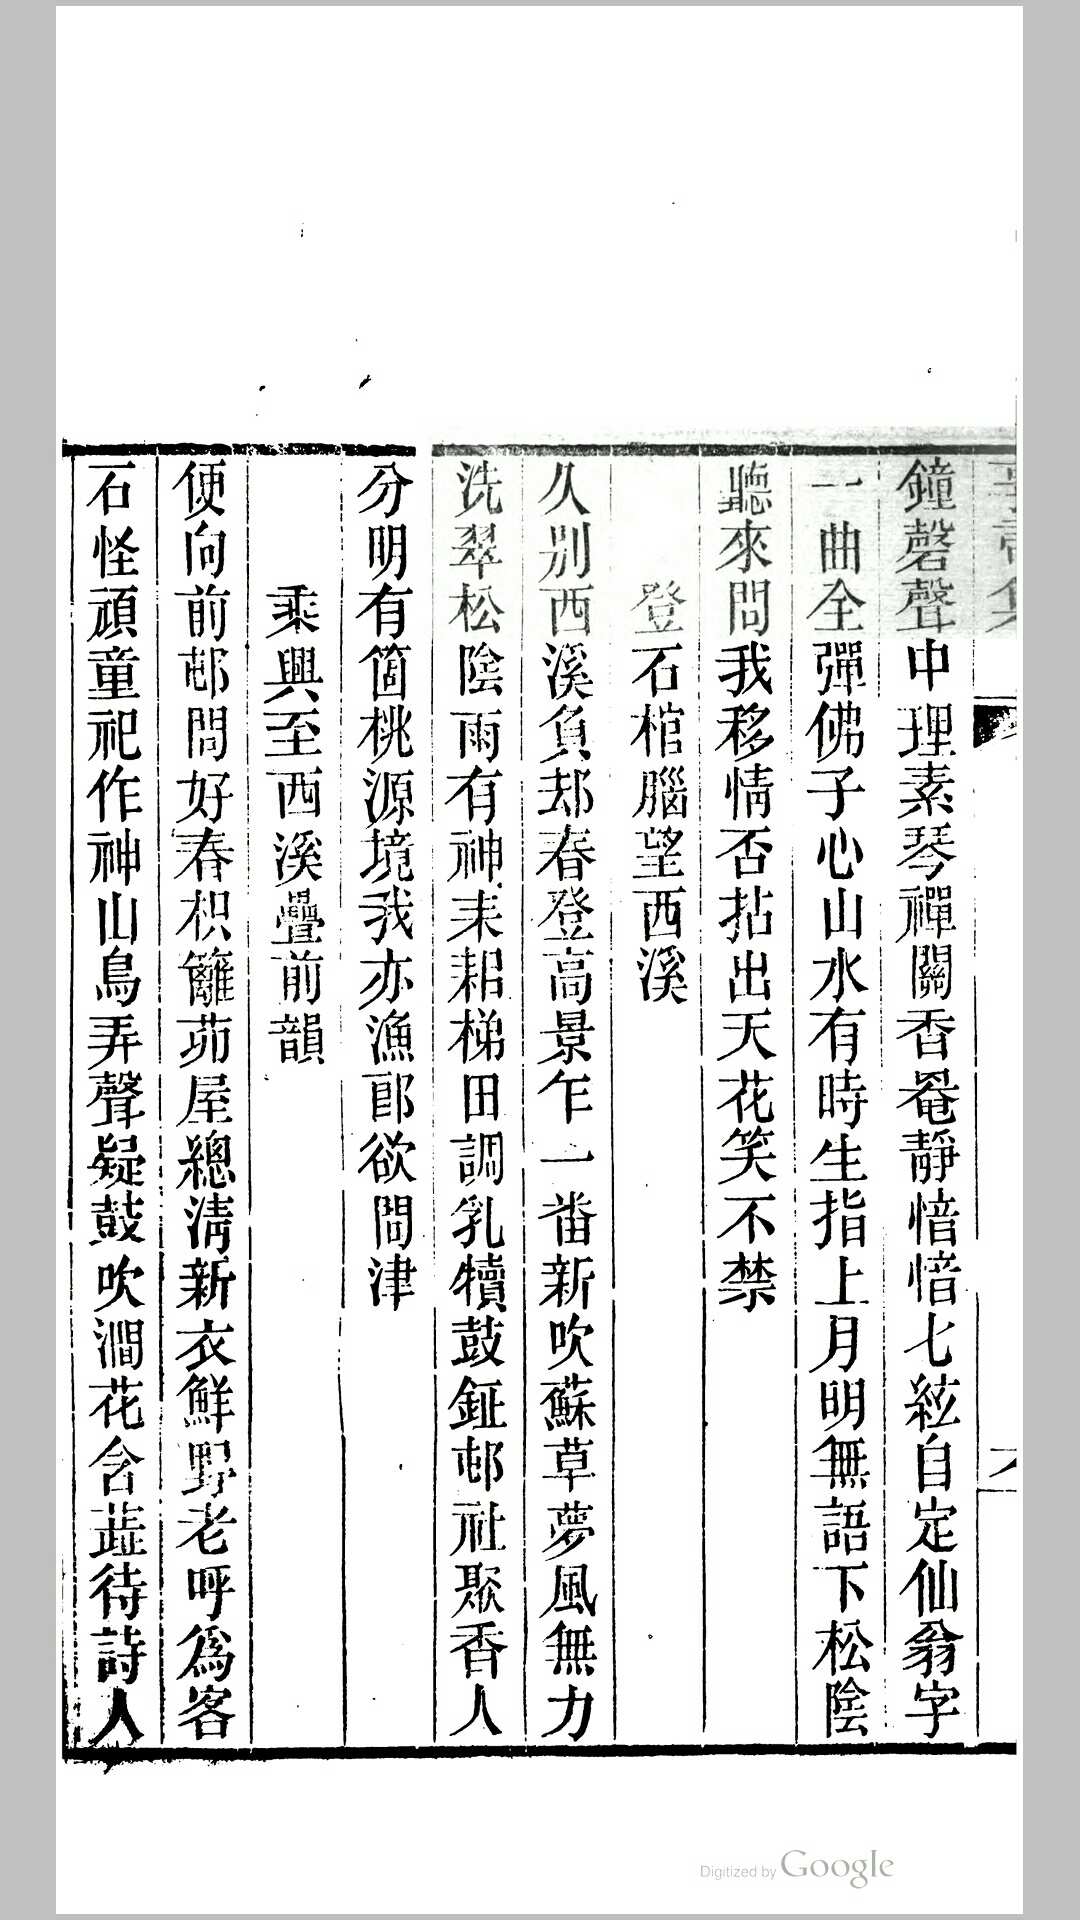 鐘磬聲中理素琴禪關香菴靜愔愔七絃自定仙翁字
一曲全彈佛子心山水有時生指上月明無語下松陰
聽來問我移情否拈出天花笑不禁
登石棺腦望西溪
久别西溪負却春登高景乍一番新吹蘇草夢風無力
洗翠松陰雨有神耒耜梯田調乳犢鼓鉦邨社聚香人
分明有箇桃源境我亦漁郎欲問津
乘興至西溪疊前韻
便向前邨問好春枳籬茆屋總淸新衣鮮野老呼爲客
石怪頑童祀作神山鳥弄聲疑鼓吹澗花含蕋待詩人
Digitized by Google